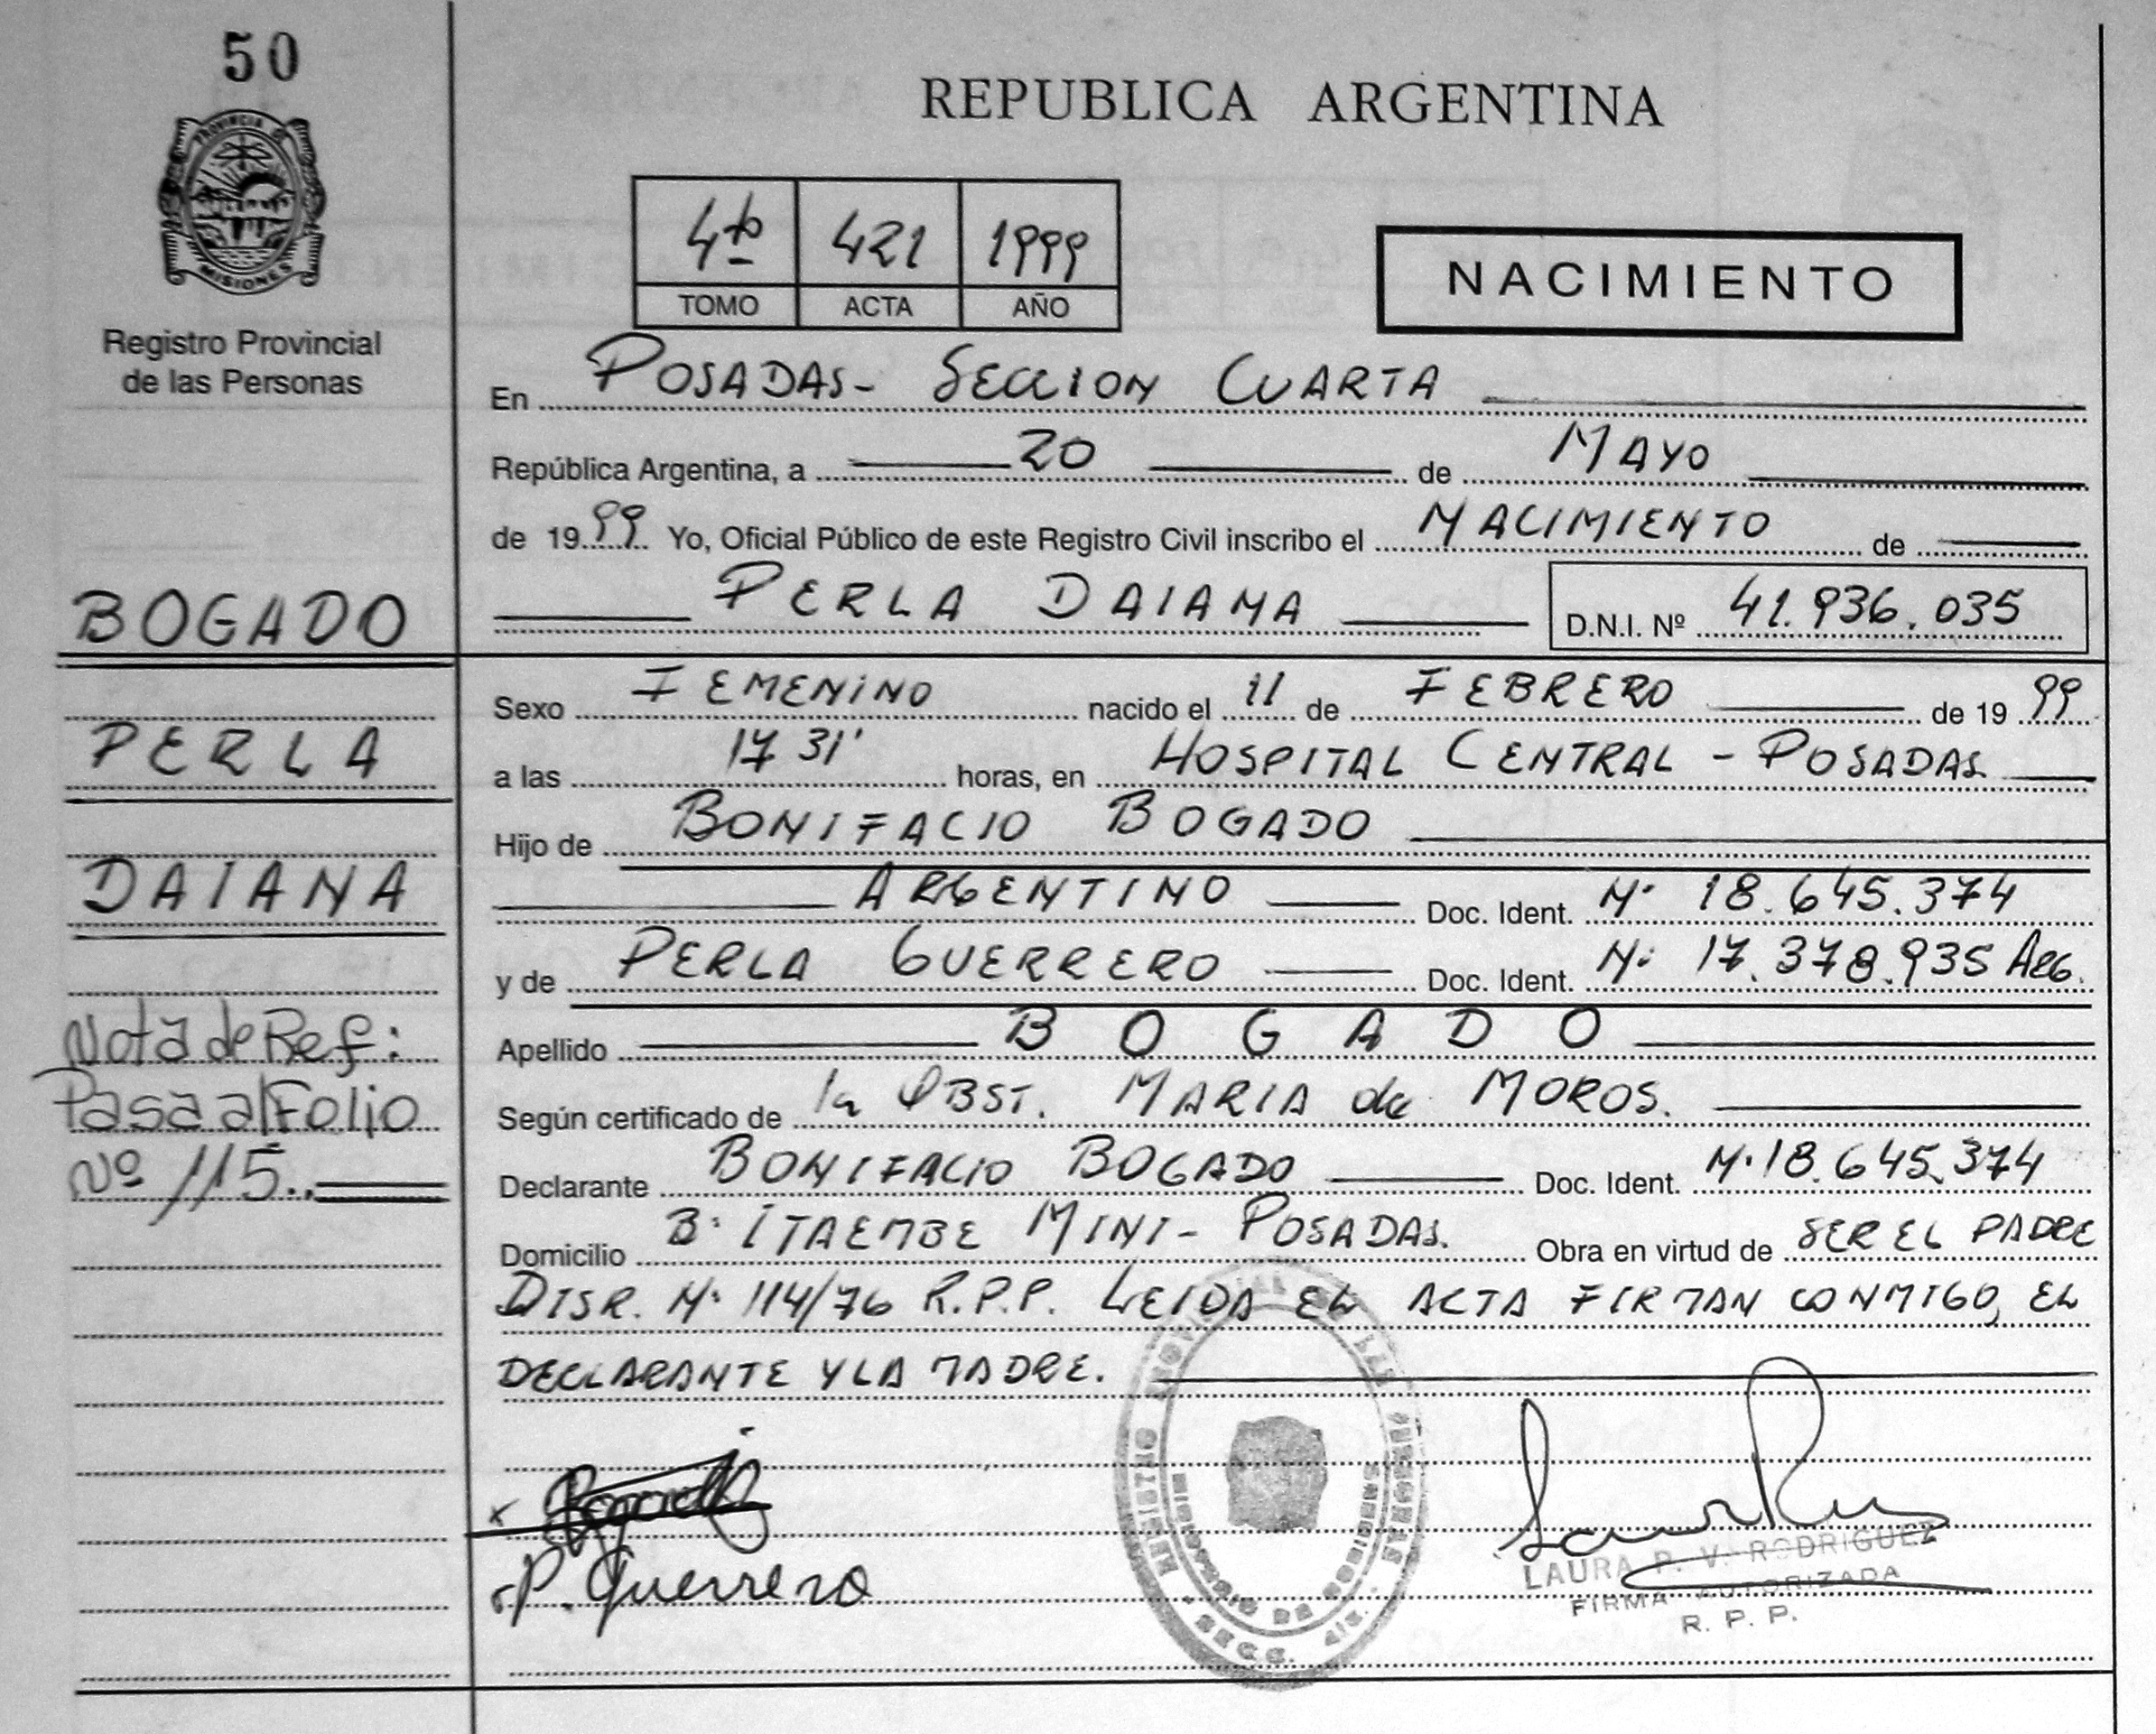 50
PROVINCIA DE
MISIONES
Registro Provincial
de las Personas
BOGADO
PERLA
DAIANA
Nota de Ref:
Pasa al Folio
Nº 115.
REPUBLICA ARGENTINA
4to 421 1999
TOMO ACTA AÑO
NACIMIENTO
En POSADAS- SECCION CUARTA
República Argentina, a 20 de MAYO
de 1999 Yo, Oficial Público de este Registro Civil inscribo el NACIMIENTO de
PERLA DAIANA D.N.I. Nº 41.936.035
Sexo FEMENINO nacido el 11 de FEBRERO de 1999
a las 17 31' horas, en HOSPITAL CENTRAL - POSADAS
Hijo de BONIFACIO BOGADO
ARGENTINO Doc. Ident. N· 18.645.374
y de PERLA GUERRERO Doc. Ident. N: 17.378.935 ARG.
Apellido BOGADO
Según certificado de la OBST. MARIA de MOROS.
Declarante BONIFACIO BOGADO Doc. Ident. N·18.645.374
Domicilio B: ITAEMBE MINI- POSADAS. Obra en virtud de SER EL PADRE
DISP. N· 114/76 R.P.P. LEIDA EL ACTA FIRMAN CONMIGO, EL
DECLARANTE Y LA MADRE.
P. Guerrero
LAURA P. V. RODRIGUEZ
FIRMA AUTORIZADA
R. P. P.